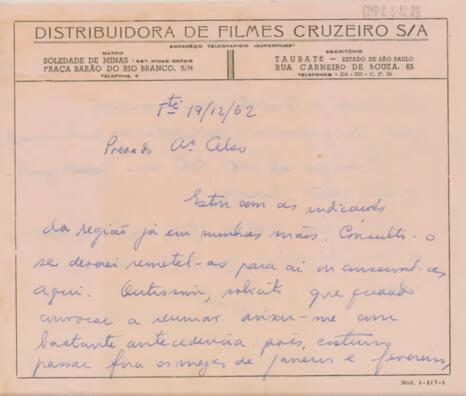 CMP 2.3.11.23
DISTRIBUIDORA DE FILMES CRUZEIRO S/A
ENDERÊÇO TELEGRAFICO «SUPERFILMS»
MATRIZ
SOLEDADE DE MINAS - EST. MINAS GERAIS
PRAÇA BARÃO DO RIO BRANCO, S/N
TELEFONE, 5
ESCRITÓRIO
TAUBATÉ - ESTADO DE SÃO PAULO
RUA CARNEIRO DE SOUZA, 85
TELEFONES - C. P. 50
Tté 19/12/62
Presado Aº Celso
Estou com as indicações
da região já em minhas mãos. Consulto-o
se deverei remetel-as para ai ou conserval-as
aqui. Outrossim, solicito que quando
convocar a reunião avise-me com
bastante antecedencia, pois, costumo
passar fora os mezes de janeiro e fevereiro,
Mod. 4-217-1